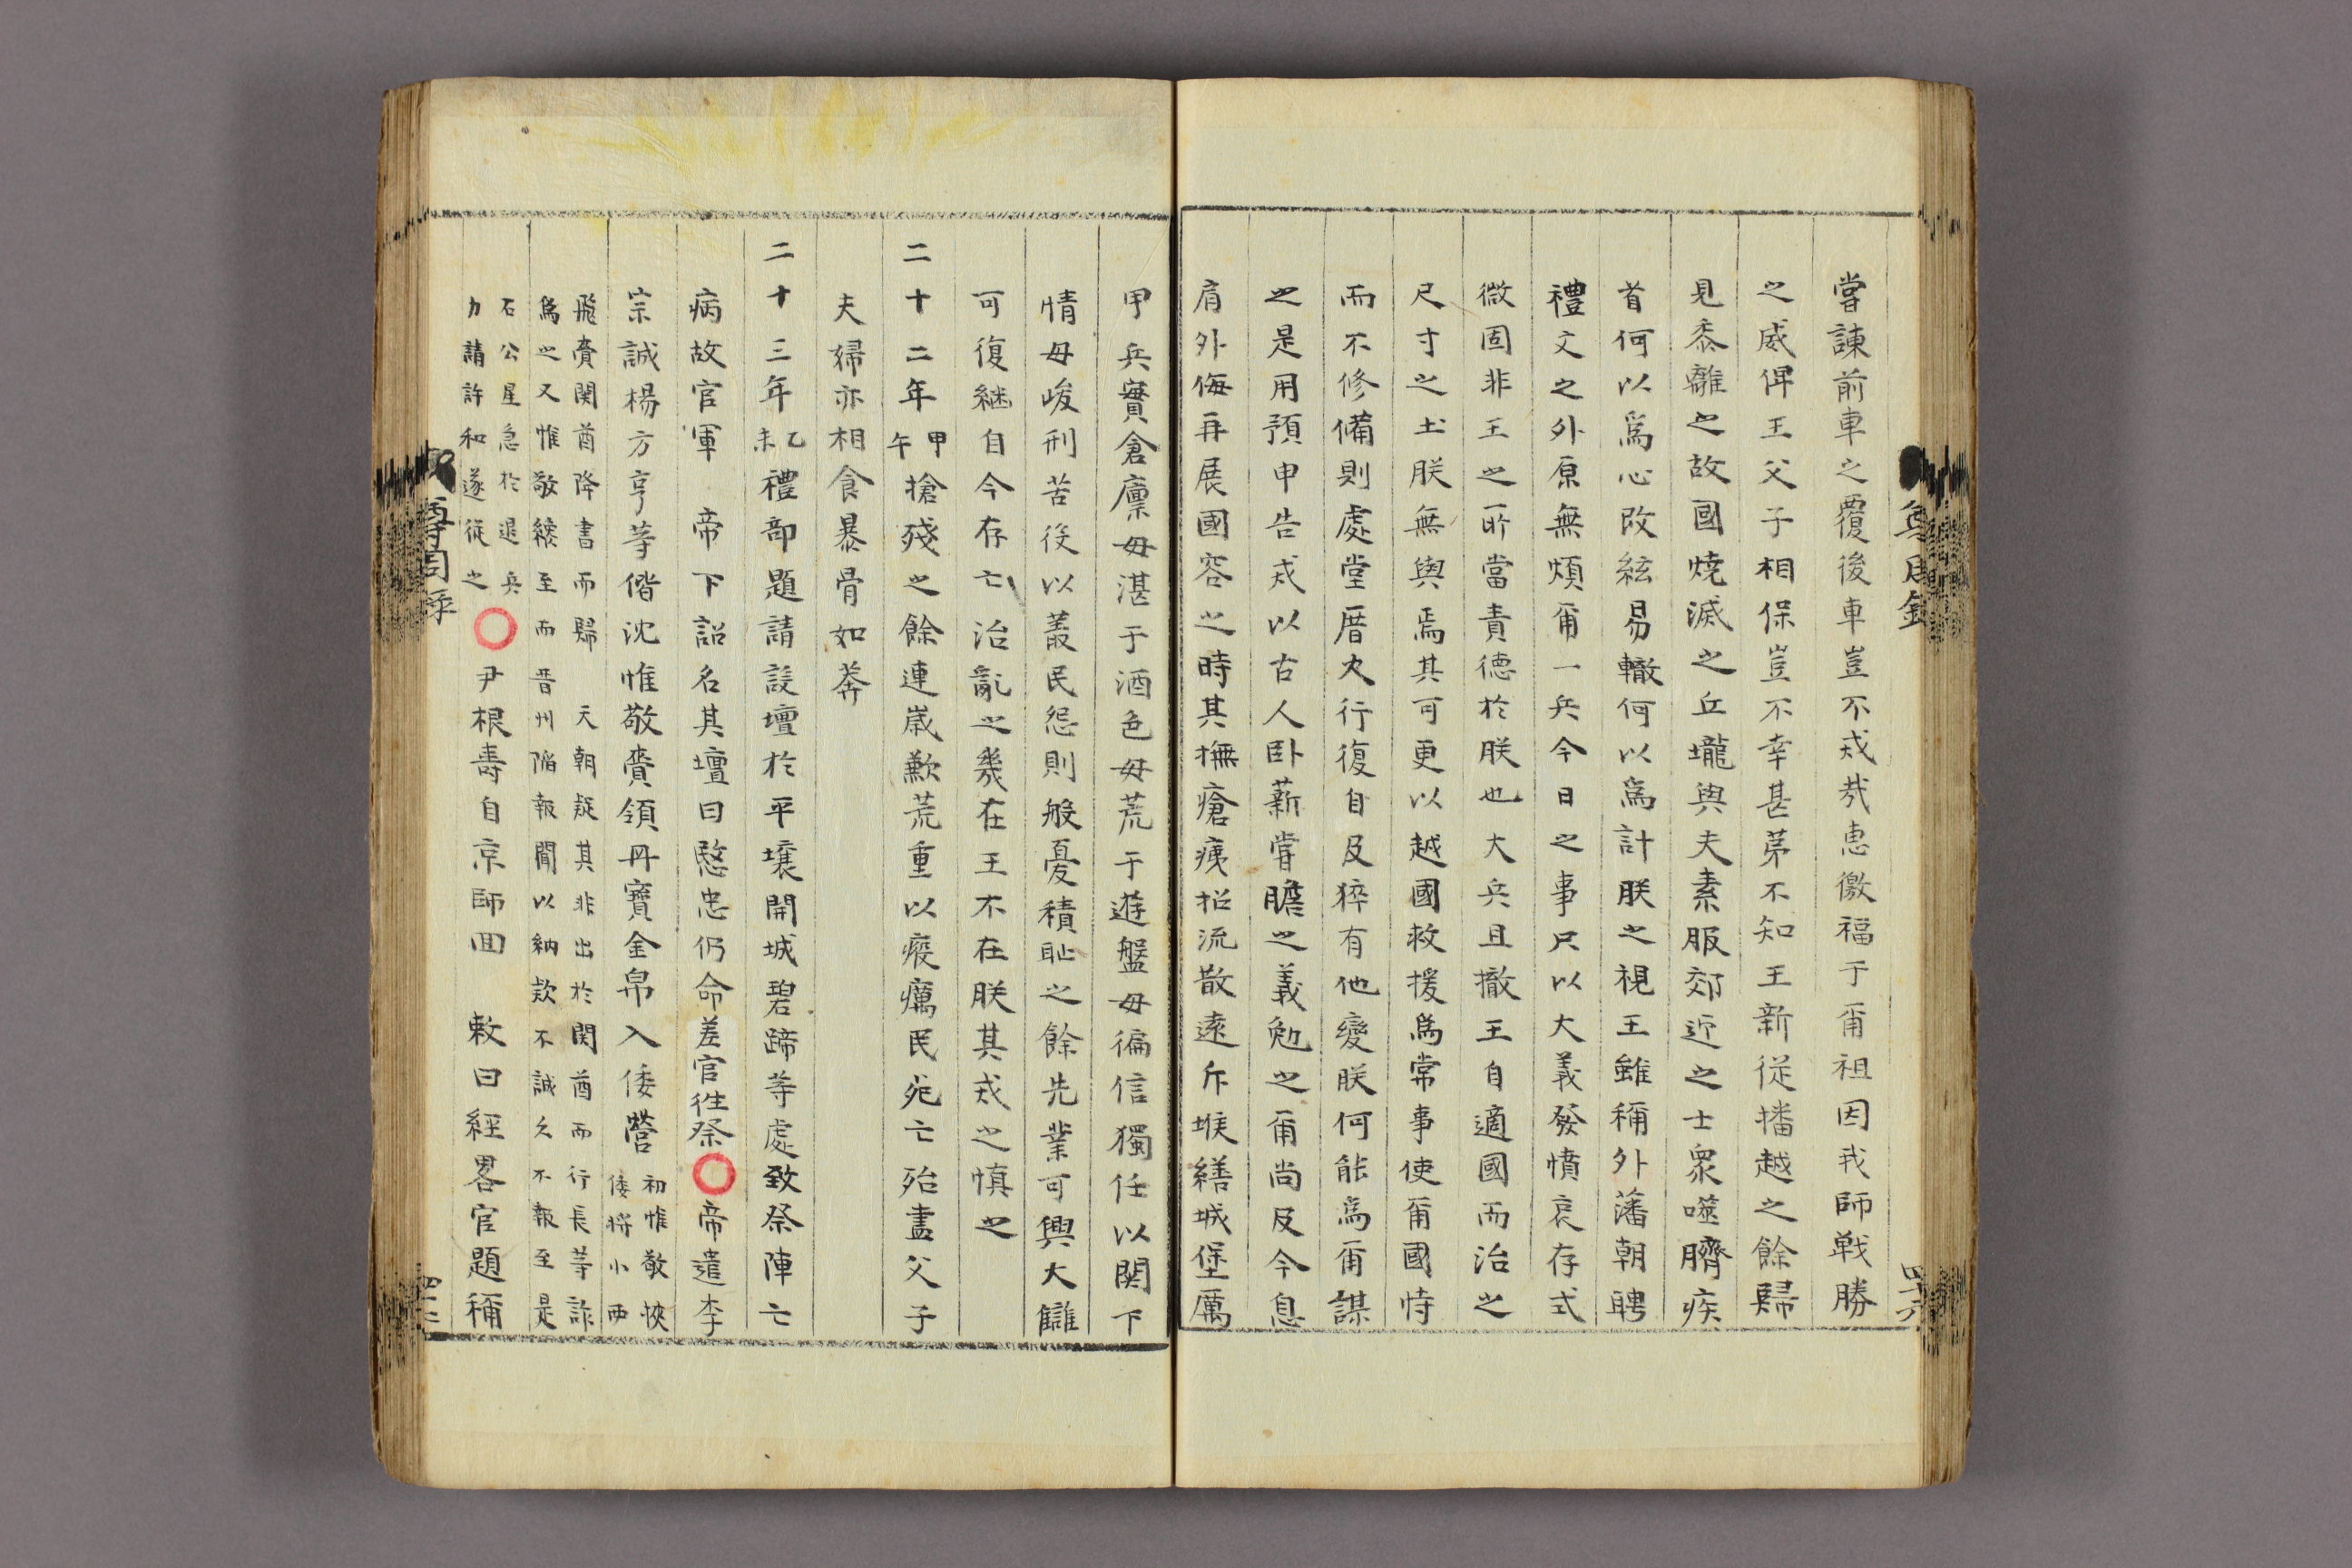 嘗諫前車之覆後車豈不戒㢤恵徼福于爾祖因我師戰勝
之威俾王父子相保豈不幸甚苐不知王新從播越之餘歸
見黍離之故國燒滅之丘壠與夫素服郊近之士衆噬臍疾
首何以爲心改絃易轍何以爲計朕之視王雖稱外藩朝聘
禮文之外原無煩爾一兵今日之事只以大義發憤哀存式
微固非王之所當責德於朕也大兵且撤王自適國而治之
尺寸之土朕無與焉其可更以越國救援爲常事使爾國恃
而不修備則處堂厝火行復自及猝有他變朕何能爲爾謀
之是用預申告戒以古人卧薪嘗膽之義勉之爾尚及今息
肩外侮再展國容之時其撫瘡痍招流散遠斥堠繕城堡厲
甲兵實倉廪毋湛于酒色毋荒于遊盤毋偏信獨任以閼下
情毋峻刑苦役以叢民怨則殷憂積耻之餘先業可興大讎
可復継自今存亡治亂之幾在王不在朕其戒之慎之
二十二年甲午搶殘之餘連歲歉荒重以癈癘民死亡殆盡父子
夫婦亦相食暴骨如莽
二十三年乙未禮部題請設壇於平壤開城碧蹄等處致祭陣亡
病故官軍 帝下詔名其壇曰愍忠仍命差官徃祭○帝遣李
宗誠楊方亨等偕沈惟敬賫領丹寶金帛入倭營初惟敬挾倭將小西
飛賫関酋降書而歸 天朝疑其非出於関酋而行長等詐
爲之又惟敬綫至而晋州陷報聞以納欵不誠久不報至是
石公星急於退兵力請許和遂從之○尹根壽自京師回 敕曰經畧官題稱
四十六